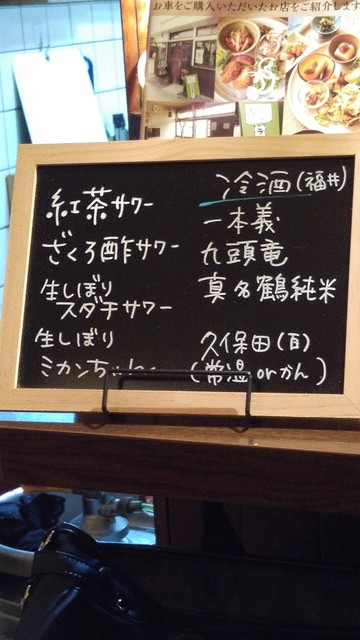 お車をご購入いただいたお店をご紹介します
紅茶サワー
ざくろ酢サワー
生しぼり
スダチサワー
生しぼり
冷酒(福井)
一本義
九頭竜
真名鶴純米
久保田(百)
(常温orかん)